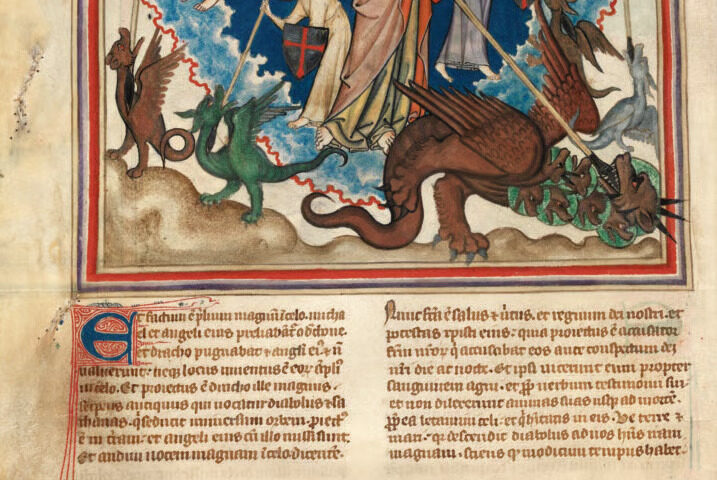 Et factum ē plium magnū ī celo. micha
el et angeli eius preliabāt̄ ō dͬcone.
et dracho pugnabat ⁊ angl̄i ei⁹. ⁊ n̄
ualuerunt. neqȝ locus inuentus ē eoꝝ āpli⁹
in celo. Et proiectus ē dracho ille magnus.
serpens antiquus qui uocatur diabolus ⁊ sa
thanas. q̄ seducit uniuersum orbem. ꝓiect⁹
ē in t̄ram. et angeli eius cū illo missi sunt.
Et audiui uocem magnam ī celo. dicentē.
Nunc fc̄ā ē salus ⁊ u̓tus. et regnum dei nostri. et
potestas xp̄isti eius. quia proiectus ē accusator
fr̄m nr̄oꝝ q̄ accusabat eos ante conspectum dei
nr̄i die ac nocte. Et ipsi uicerunt eum propter
sanguinem agni. et ꝓp̄ uerbum testimonii sui.
et non dilexerunt animas suas usqȝ ad mortē.
ꝓp̄ea letamini celi. et q̄ hītatis in eis. Ve terre ⁊
mari. q̄ descendit diabolus ad uos hn̄s iram
magnam. sciens q̄ modicum tempus habet.